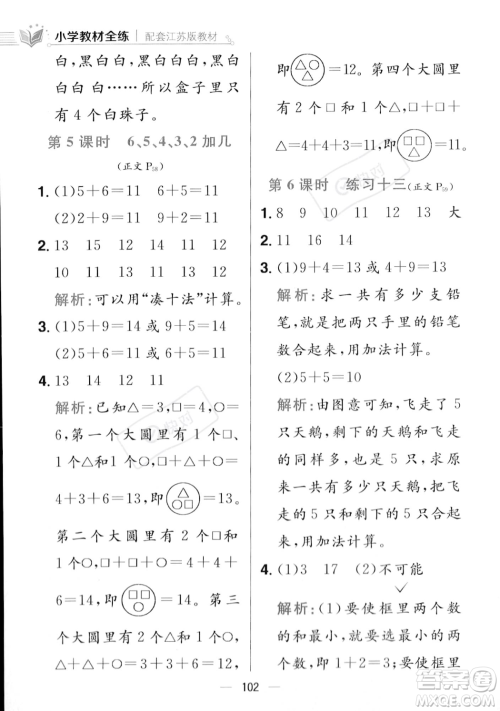 小学教材全练 配套江苏版教材
白,黑白白白,黑白白白白,黑
白白 白白……所以盒子里
只有 4 个白珠子。
第 5 课时 6、5、4、3、2 加几
(正文 P₅₈)
1. (1)5+6=11 6+5=11
(2)2+9=11 9+2=11
2. 13 15 12 14 12
10 11 13 12 11
解析:可以用“凑十法”计算。
3. (1)5+9=14 或 9+5=14
(2)6+5=11 或 5+6=11
4. 13 14 12 11
解析:已知△=3,□=4,○=
6,第一个大圆里有 1 个□、
1 个△和 1 个○,□+△+○=
4+3+6=13,即=13。
第二个大圆里有 2 个□和
1 个○,□+□+○=4+4+
6=14,即=14。第三
个大圆里有 2 个△和 1 个○,
△+△+○=3+3+6=12,
即=12。第四个大圆里
有 2 个□和 1 个△,□+□+
△=4+4+3=11,即=
11。
第 6 课时 练习十三(正文 P₅₉)
1. 8 9 10 11 12 13 大
2. 11 16 14
3. (1)9+4=13 或 4+9=13
解析:求一共有多少支铅
笔,就是把两只手里的铅笔
数合起来,用加法计算。
(2)5+5=10
解析:由图意可知,飞走了 5
只天鹅,剩下的天鹅与飞走
的同样多,是 5 只,求原
来一共有多少只天鹅,把飞
走的 5 只和剩下的 5 只合起
来,用加法计算。
4. (1)3 17 (2)不可能
解析:(1)要使框里两个数
的和最小,就要使框里两个
102